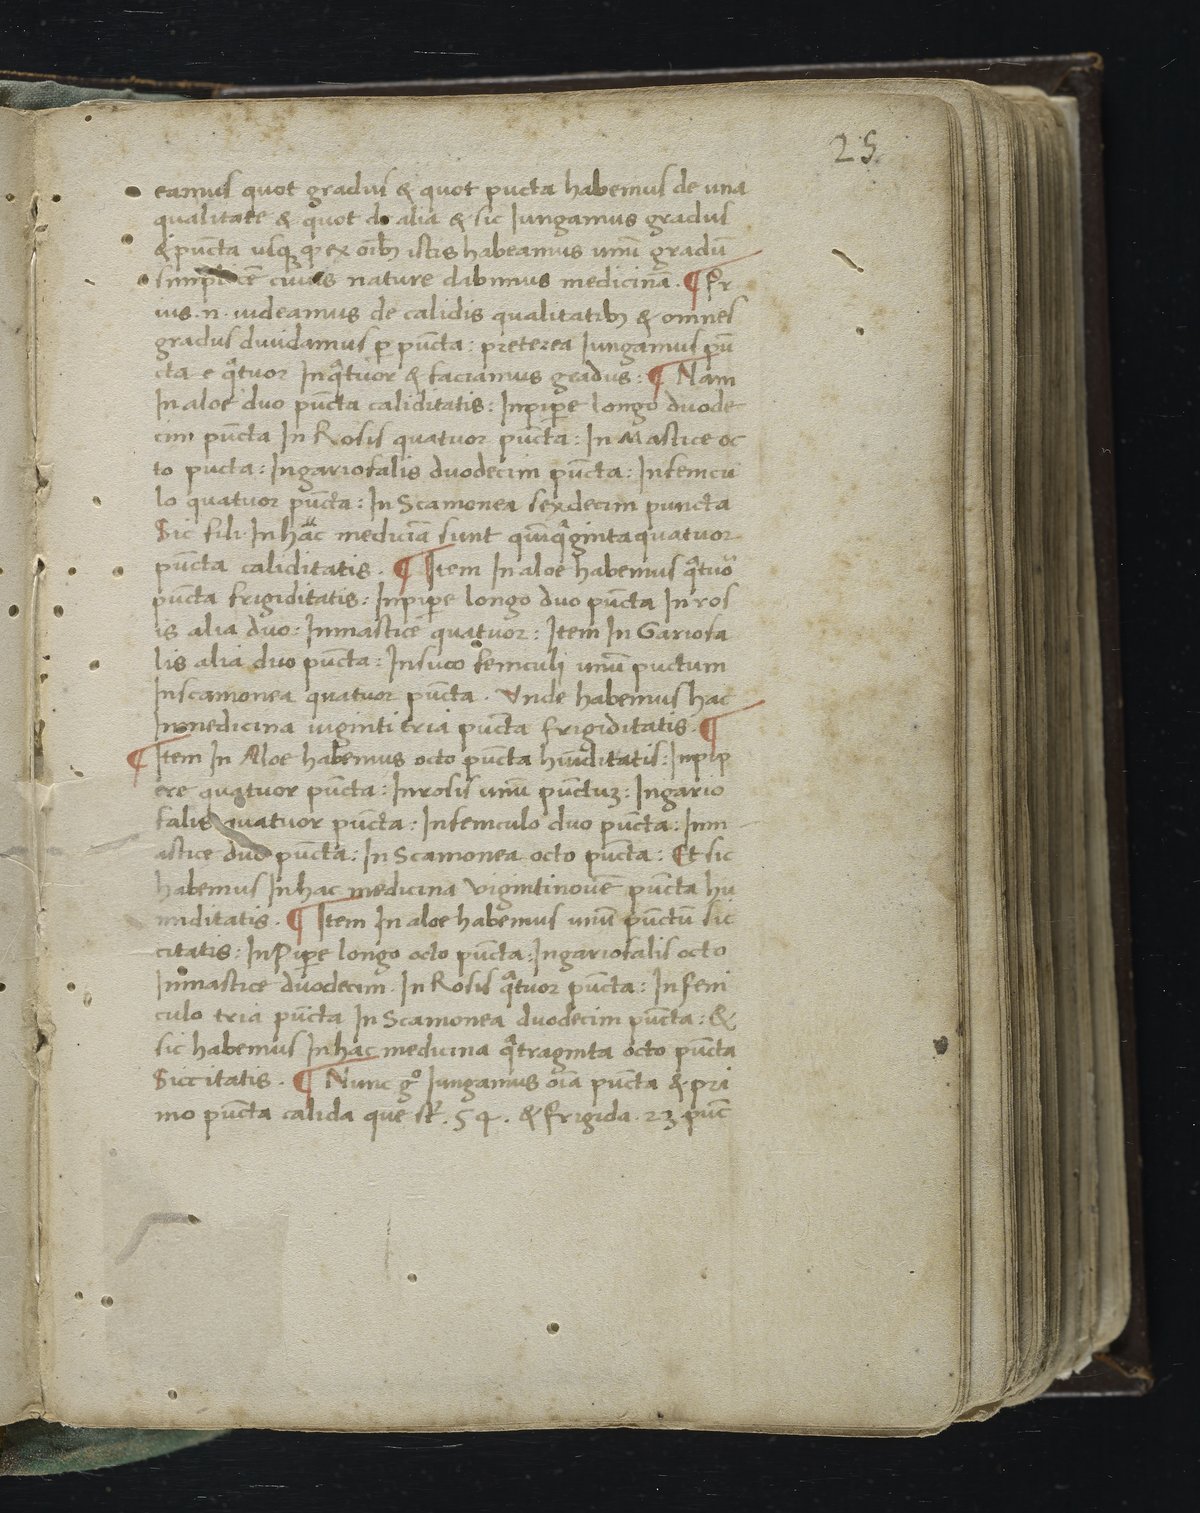 25
eamus quot gradus & quot pūcta habemus de una
qualitate & quot de alia & sic Jungamus gradus
& pūcta usq; q ex oīb; istis habeamus unū gradū
simplicē cuius nature dabimus medicinā. ¶ Pr
ius .n. uideamus de calidis qualitatib; & omnes
gradus diuidamus p pūcta: preterea Jungamus pū
cta e qtuor In qtuor & faciamus gradus: ¶ Nam
In aloe duo pūcta caliditatis: In pipe longo duode
cim pūcta In Rosis quatuor pūcta: In Mastice oc
to pucta: In gariofalis duodecim pūcta: In femcu
lo quatuor pūcta: In Scamonea sexdecim puncta
Sic fili In hac mediciā sunt quīqginta quatuor
pūcta caliditatis. ¶ Item In aloe habemus qtuor
pūcta frigiditatis: In pipe longo duo pūcta In ros
is alia duo: In mastice quatuor: Item In Gariofa
lis alia duo pūcta: In suco femculi unū puctum
In scamonea quatuor pūcta. Vnde habemus hac
In medicina uiginti tria pūcta frigiditatis. ¶
¶ Item In Aloe habemus octo pūcta hūiditatis: In pip
ere quatuor pūcta: In rosis unū pūctuȝ: In gario
falis quatuor pūcta: In femculo duo pūcta: In m
astice duo pūcta: In Scamonea octo pūcta: Et sic
habemus In hac medicina vigintinouē pūcta hu
miditatis. ¶ Item In aloe habemus unū pūctū sic
citatis: In Pipe longo octo pūcta: In gariofalis octo
In mastice duodecim. In Rosis qtuor pūcta: In feni
culo tria pūcta In Scamonea duodecim pūcta: &
sic habemus In hac medicina qtraginta octo pūcta
Siccitatis. ¶ Nunc gº Jungamus oīa pūcta & pri
mo pūcta calida que st̄. 54. & frigida. 23 pūc